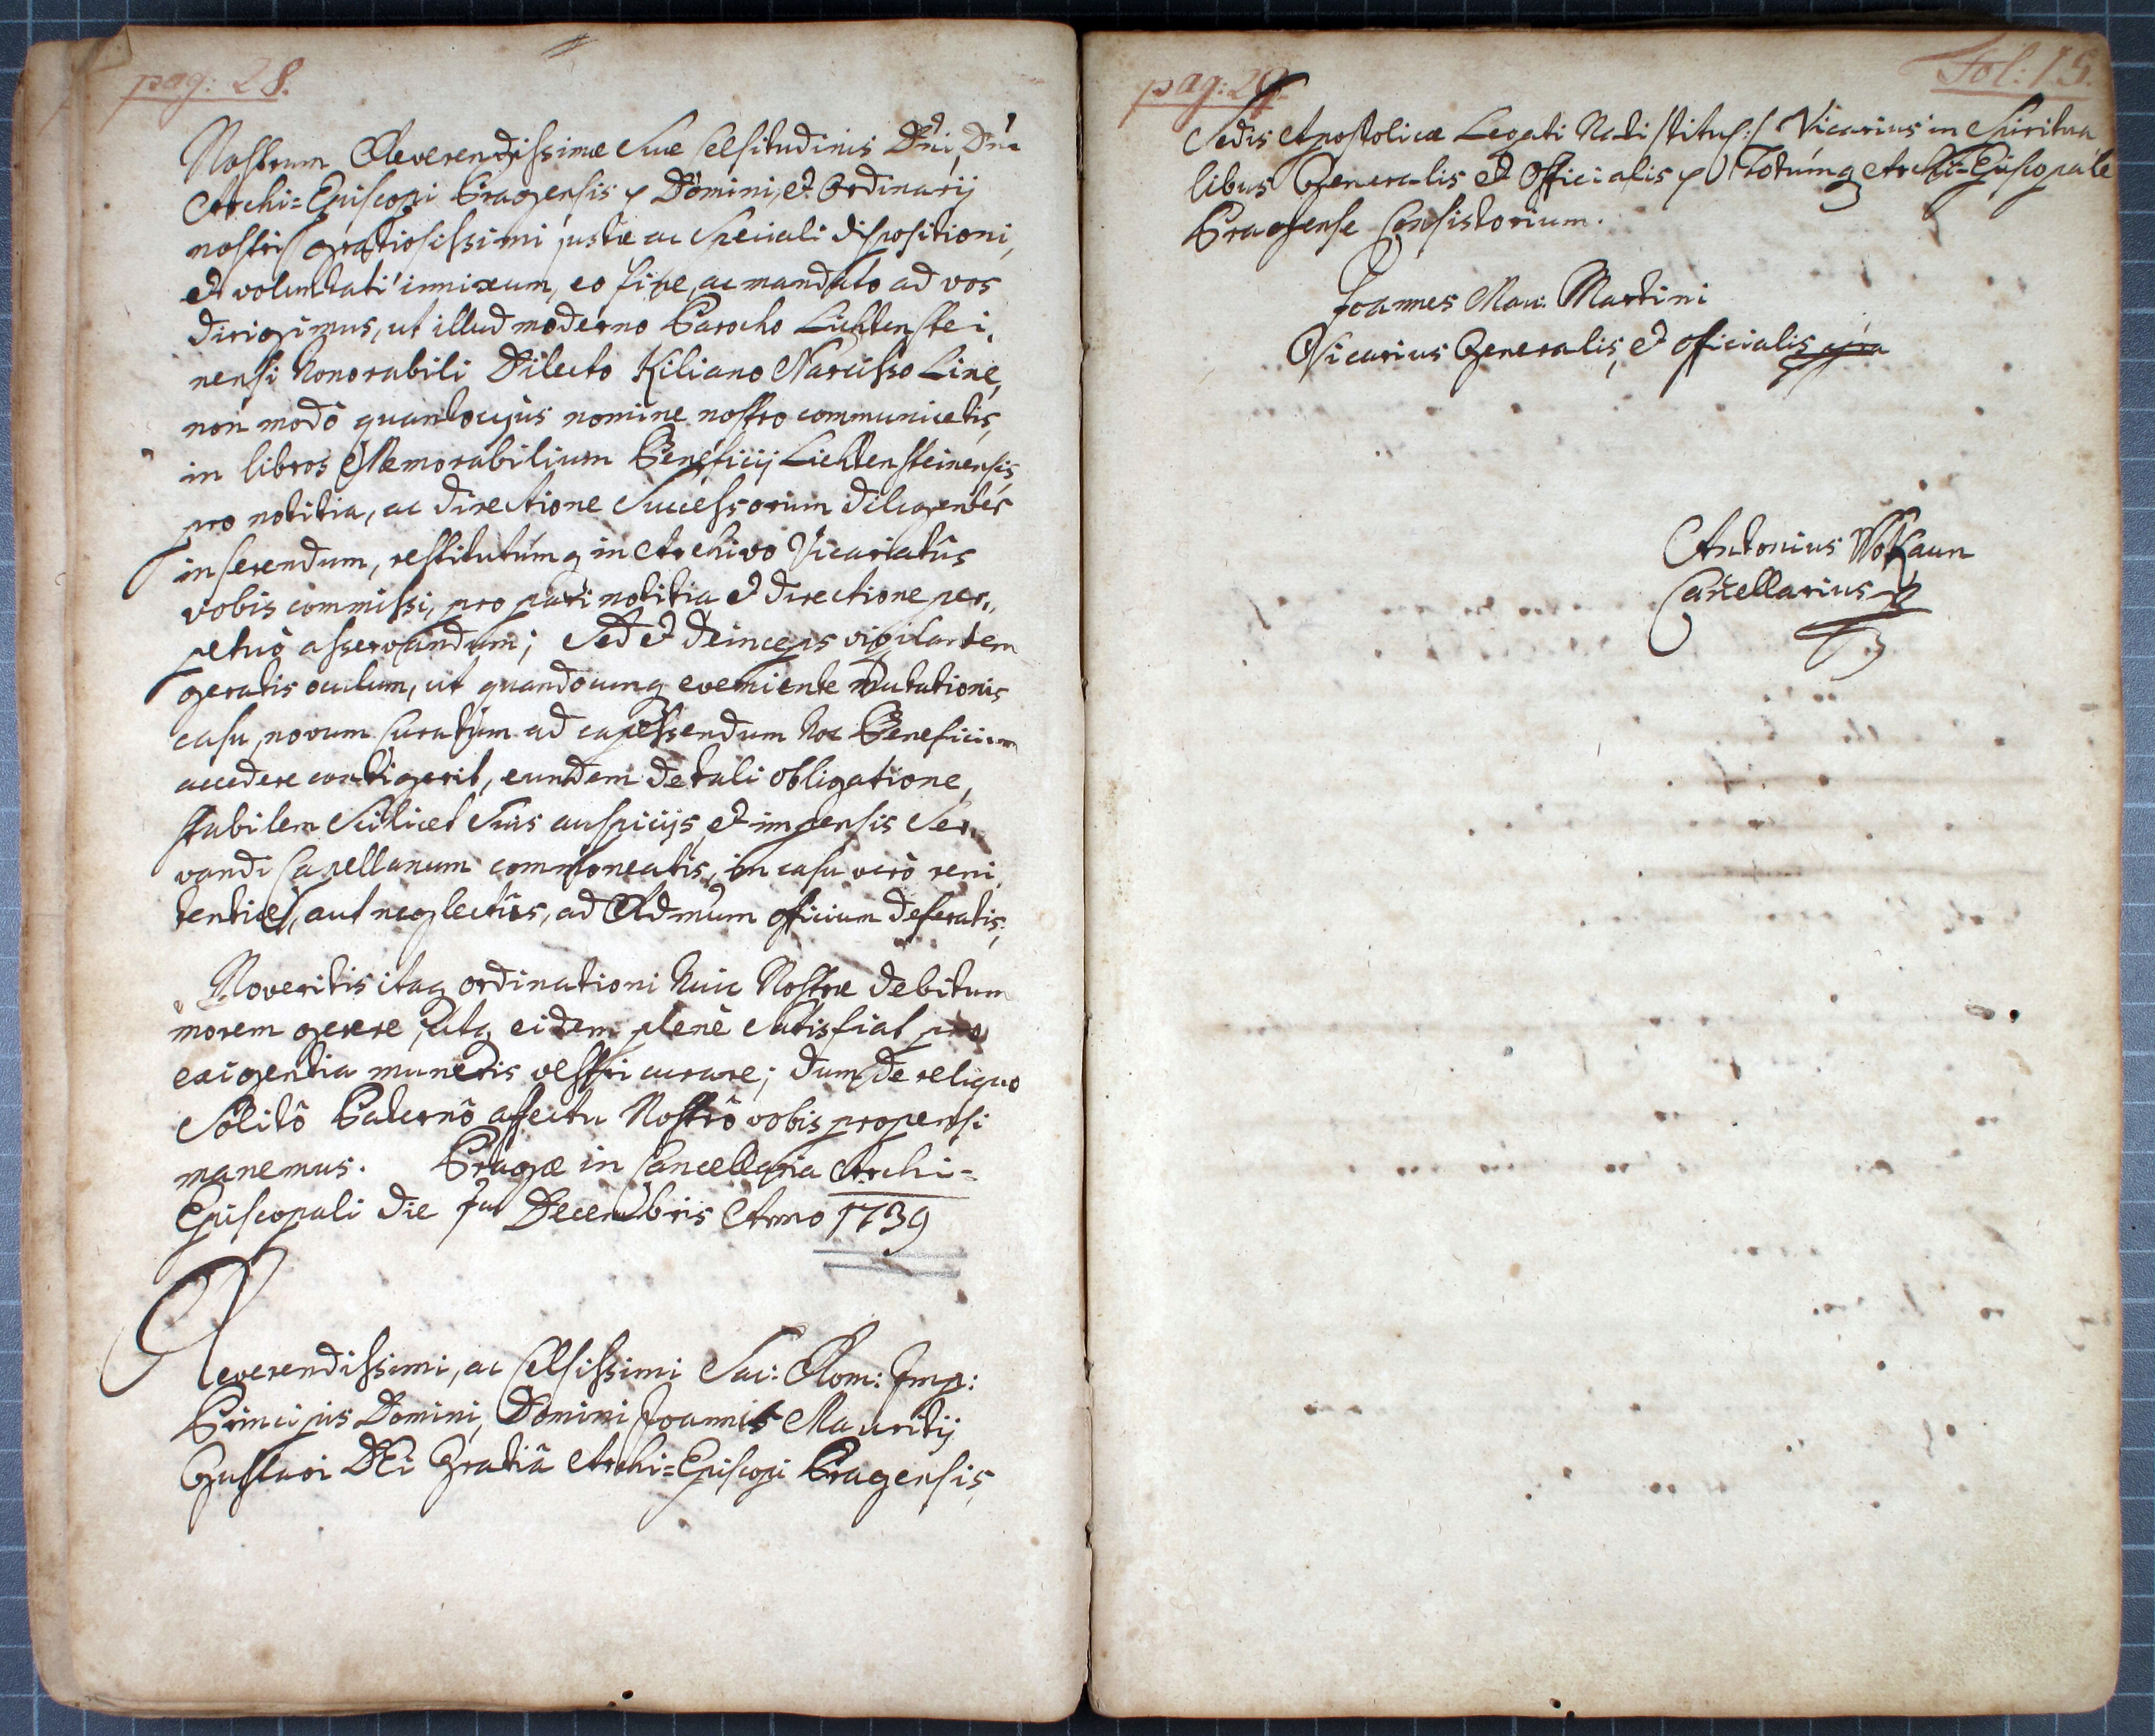 pag: 28.
Nostrum Reverendissimæ Suæ Celsitudinis Dni, Dni
Archi=Episcopi Pragensis p Domini, et Ordinarij
nostri gratiosissimi justæ ac speciali dispositioni,
et voluntati innixum, eo fine, ac mandato ad vos
dirigimus, ut illud moderno Parocho Lichtenstei,
nensi honorabili Dilecto Kiliano Narcisso Line,
non modò quantocyùs nomine nostro communicetis,
in libros Memorabilium Beneficij Lichtensteinensis,
pro notitia, ac directione Successorum diligentèr
inserendum, restitutúmq in Archivo Vicariatûs
vobis commissi, pro pari notitia et directione per,,
petuò asservandum; Sed et deinceps vigilantem
geratis oculum, ut quandocunq eveniente mutationis
casu, novum Curatum ad capessendum hoc Beneficium
accedere contigerit, eundem de tali obligatione,
stabilem scilicet suis auspicijs, et impensis Ser,,
vandi Capellanum commoneatis, in casu verò reni,
tentiæ, aut neglectûs, ad Rdmum officium deferatis;
Noveritis itaq ordinationi huic Nostræ debitum
morem gerere, utq eidem plenè satisfiat pro
exigentia muneris vestri curare; dum de reliquo
Solitô Paternô affectu Nostrô vobis propensi
manemus. Pragæ in Cancellaria Archi=
Episcopali die Decembris Anno 1739
Reverendissimi, ac Celsissimi Sac: Rom: Imp:
Principis Domini, Domini Joannis Mauritij
Gustavi DEi Gratiâ Archi=Episcopi Pragensis,
pag: 29.
Fol: 15.
Sedis Apostolicæ Legati Nati /titul:/ Vicarius in Spiritua
libus Generalis et Officialis p Totúmq Archi=Episcopale
Pragense Consistorium.
Joannes Mau: Martini
Vicarius Generalis, et officialis mpria
Antonius Wokaun
Cancellarius